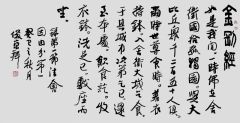 金剛經
如是我聞一時佛在舍
衛國祇樹給孤獨園與大
比丘眾千二百五十人俱
爾時世尊食時著衣
持鉢入舍衛大城乞食
於其城中次第乞已還
至本處飯食訖收
衣鉢洗足已敷座而
坐
法會
因由分第一